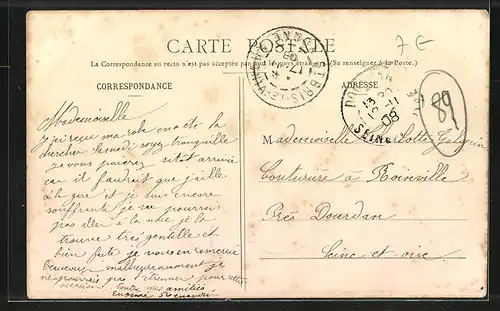 7 E
CARTE POSTALE
La Correspondance au recto n'est pas acceptée par tous les pays étrangers (Se renseigner à la Poste.)
CORRESPONDANCE
ADRESSE
89
Mademoiselle
j'ai reçu ma robe
chercher samedi soyez tranquille
je vous paierez sitôt arrivée
car il faudrait que j'aille
à la gare et je suis encore
souffrante je ne pourrais
pas aller à la noce je la
trouve très gentille et
bien faite je vous en remercie
beaucoup malheureusement je
ne pourrais pas l'étrenner pour cette
occasion toutes mes amitiés
Mademoiselle Charlotte
Couturière à Roinville
Près Dourdan
Seine et oise